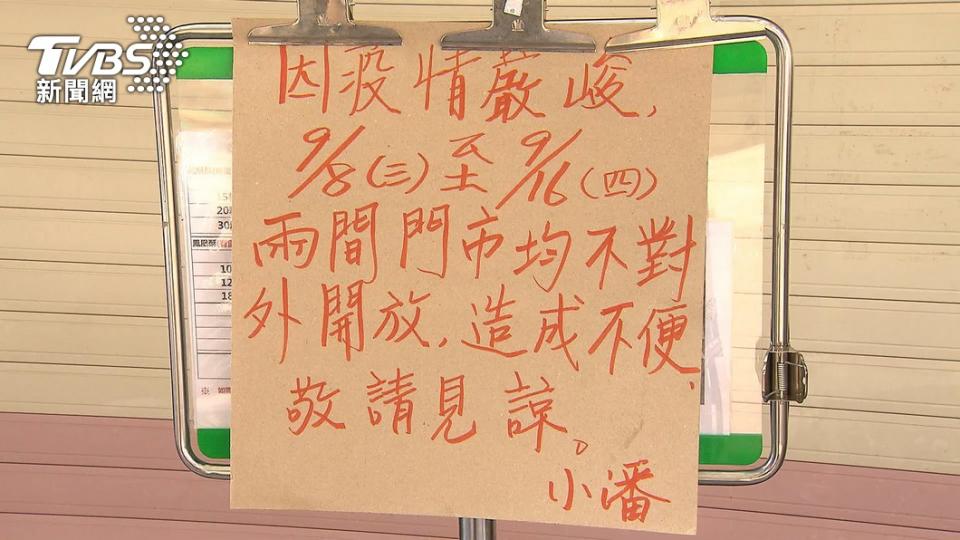 TVBS
新聞網
因疫情嚴峻,
9/8(三)至9/16(四)
兩間門市均不對
外開放,造成不便,
敬請見諒。
小潘